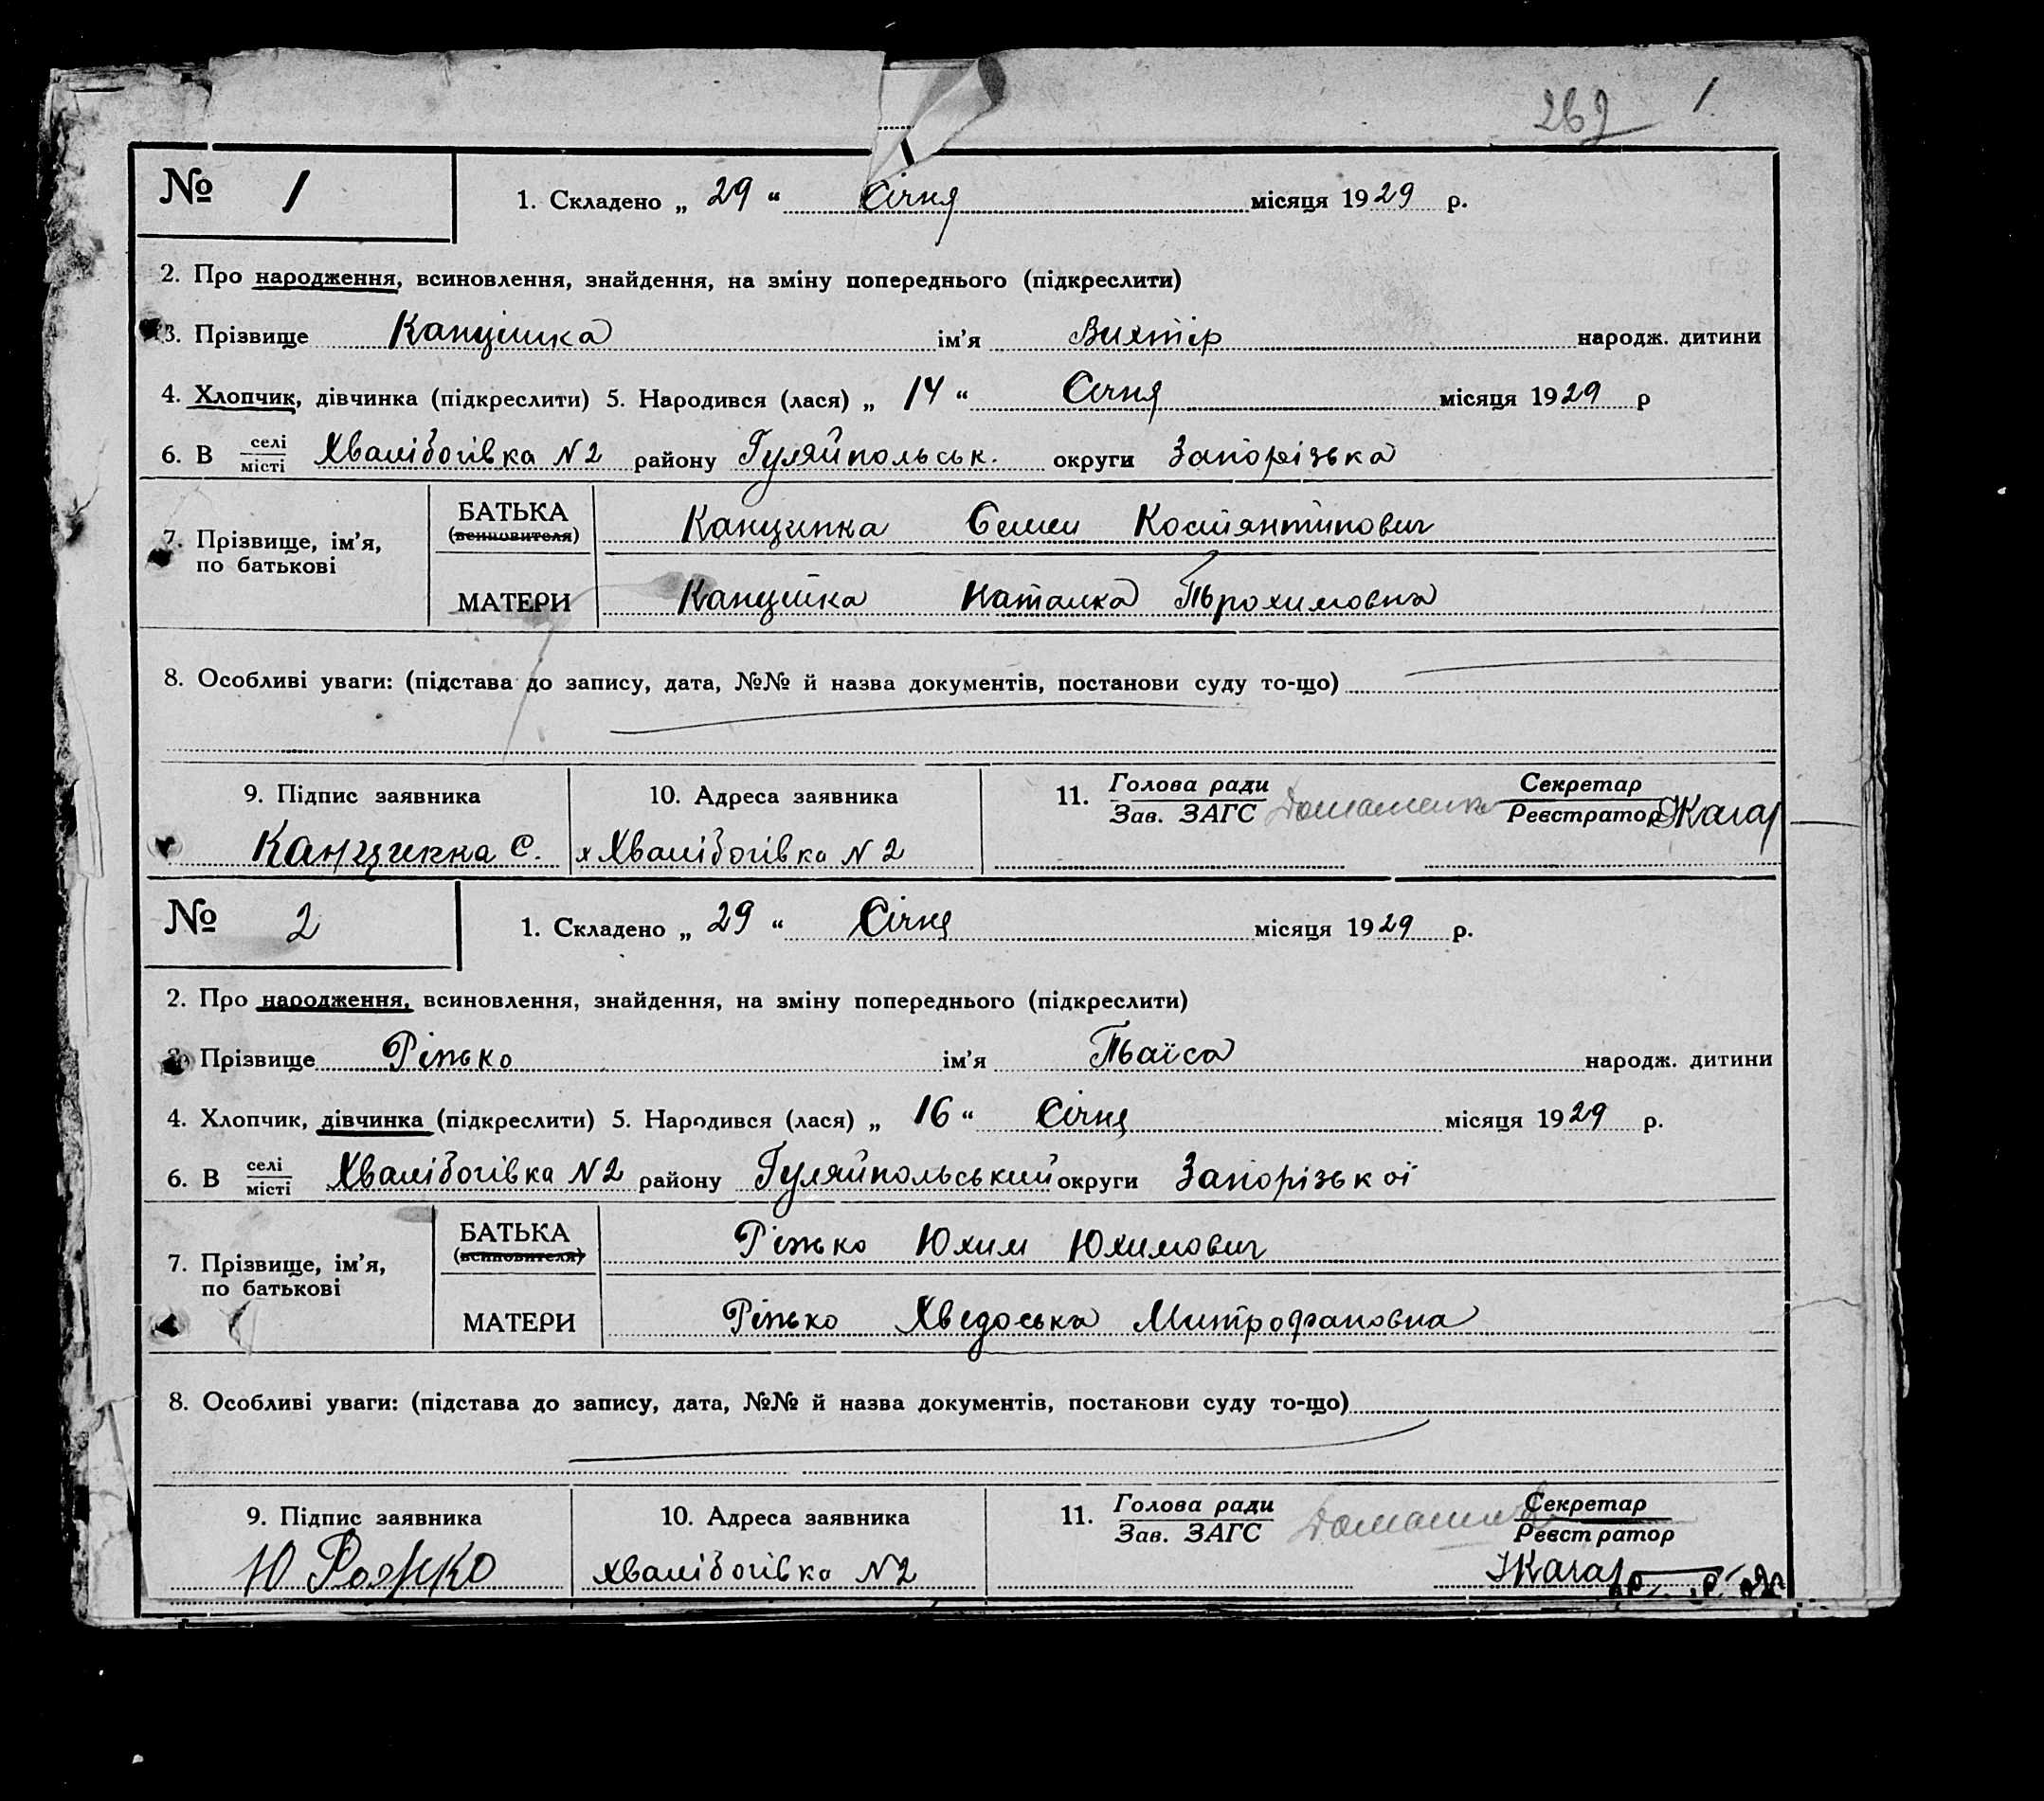 262 1
№ 1 1. Складено „ 29 “ Січня місяця 1929 р.
2. Про народження, всиновлення, знайдення, на зміну попереднього (підкреслити)
3. Прізвище Канципка ім’я Вихтір народж. дитини
4. Хлопчик, дівчинка (підкреслити) 5. Народився (лася) „ 14 “ Січня місяця 1929 р
6. В селі місті Хвалібогівка N 2 району Гуляйпольськ. округи Запорізька
7. Прізвище, ім’я, по батькові
БАТЬКА (всиновителя) Канципка Семен Костянтинович
МАТЕРИ Канципка Наталка Трохимовна
8. Особливі уваги: (підстава до запису, дата, №№ й назва документів, постанови суду то-що)
9. Підпис заявника 10. Адреса заявника 11. Голова ради Зав. ЗАГС Домашенко Секретар Реєстратор
Канципка С. х Хвалібогівка N 2
№ 2 1. Складено „ 29 “ Січня місяця 1929 р.
2. Про народження, всиновлення, знайдення, на зміну попереднього (підкреслити)
3. Прізвище Ріпько ім’я Таїса народж. дитини
4. Хлопчик, дівчинка (підкреслити) 5. Народився (лася) „ 16 “ Січня місяця 1929 р.
6. В селі місті Хвалібогівка N 2 району Гуляйпольський округи Запорізької
7. Прізвище, ім’я, по батькові
БАТЬКА (всиновителя) Ріпько Юхим Юхимович
МАТЕРИ Ріпько Хведоська Митрофановна
8. Особливі уваги: (підстава до запису, дата, №№ й назва документів, постанови суду то-що)
9. Підпис заявника 10. Адреса заявника 11. Голова ради Зав. ЗАГС Секретар Реєстратор
Ю хвалібогівка N 2